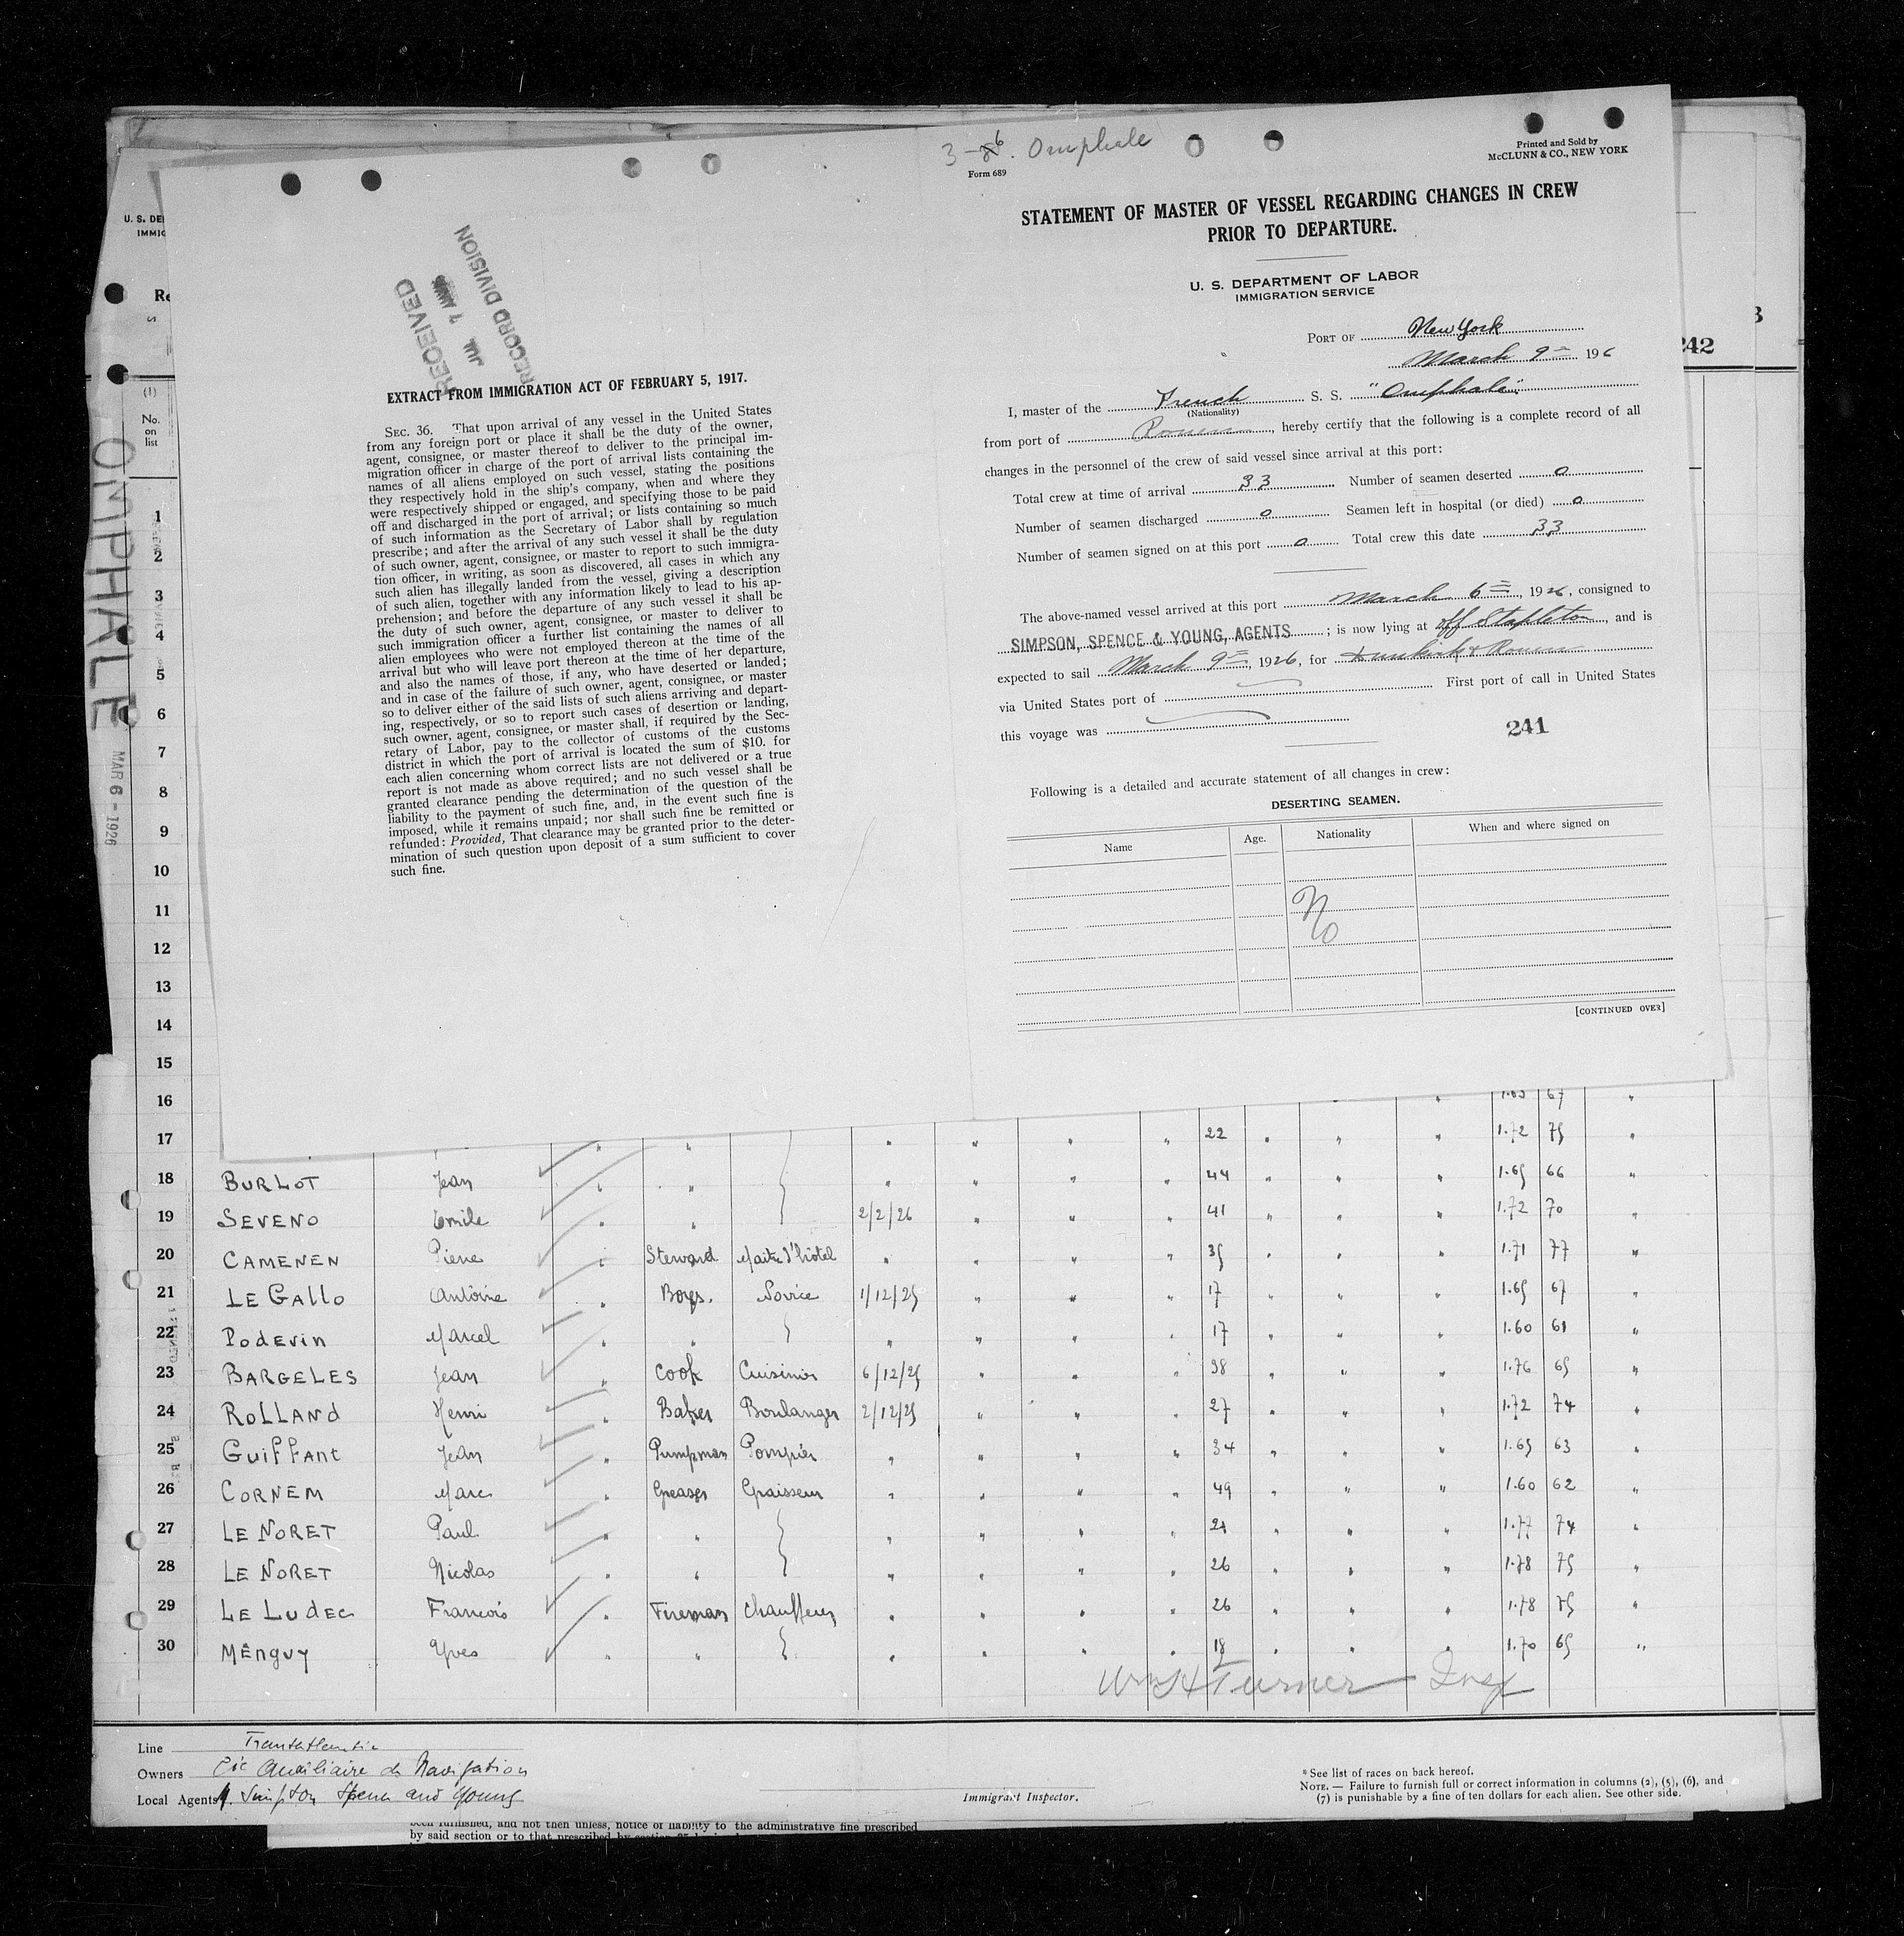 3-6. Omphale
Form 689
Printed and Sold by
McCLUNN & CO., NEW YORK
STATEMENT OF MASTER OF VESSEL REGARDING CHANGES IN CREW
PRIOR TO DEPARTURE.
U. S. DEPARTMENT OF LABOR
IMMIGRATION SERVICE
PORT OF New York
March 9 196
I, master of the French S. S. "Omphale"
(Nationality)
from port of Rouen, hereby certify that the following is a complete record of all
changes in the personnel of the crew of said vessel since arrival at this port:
Total crew at time of arrival 33 Number of seamen deserted 0
Number of seamen discharged 0 Seamen left in hospital (or died) 0
Number of seamen signed on at this port 0 Total crew this date 33
The above-named vessel arrived at this port March 6th, 1926, consigned to
SIMPSON, SPENCE & YOUNG, AGENTS; is now lying at off Stapleton, and is
expected to sail March 9th, 1926, for Dunkirk & Rouen
via United States port of First port of call in United States
this voyage was
241
Following is a detailed and accurate statement of all changes in crew:
DESERTING SEAMEN.
Name Age. Nationality When and where signed on
No
[CONTINUED OVER]
RECEIVED
JUL 7
RECORD DIVISION
EXTRACT FROM IMMIGRATION ACT OF FEBRUARY 5, 1917.
SEC. 36. That upon arrival of any vessel in the United States
from any foreign port or place it shall be the duty of the owner,
agent, consignee, or master thereof to deliver to the principal im-
migration officer in charge of the port of arrival lists containing the
names of all aliens employed on such vessel, stating the positions
they respectively hold in the ship's company, when and where they
were respectively shipped or engaged, and specifying those to be paid
off and discharged in the port of arrival; or lists containing so much
of such information as the Secretary of Labor shall by regulation
prescribe; and after the arrival of any such vessel it shall be the duty
of such owner, agent, consignee, or master to report to such immigra-
tion officer, in writing, as soon as discovered, all cases in which any
such alien has illegally landed from the vessel, giving a description
of such alien, together with any information likely to lead to his ap-
prehension; and before the departure of any such vessel it shall be
the duty of such owner, agent, consignee, or master to deliver to
such immigration officer a further list containing the names of all
alien employees who were not employed thereon at the time of the
arrival but who will leave port thereon at the time of her departure,
and also the names of those, if any, who have deserted or landed;
and in case of the failure of such owner, agent, consignee, or master
so to deliver either of the said lists of such aliens arriving and depart-
ing, respectively, or so to report such cases of desertion or landing,
such owner, agent, consignee, or master shall, if required by the Sec-
retary of Labor, pay to the collector of customs of the customs
district in which the port of arrival is located the sum of $10. for
each alien concerning whom correct lists are not delivered or a true
report is not made as above required; and no such vessel shall be
granted clearance pending the determination of the question of the
liability to the payment of such fine, and, in the event such fine is
imposed, while it remains unpaid; nor shall such fine be remitted or
refunded: Provided, That clearance may be granted prior to the deter-
mination of such question upon deposit of a sum sufficient to cover
such fine.
U. S. DE
IMMIG
242
OMPHALE
MAR 6 - 1926
(1)
No.
on
list
1
2
3
4
5
6
7
8
9
10
11
12
13
14
15
16 1.65 67 "
17 " " " " " " 22 " " " 1.72 75 "
18 BURLOT Jean " " " " " " 44 " " " 1.65 66 "
19 SEVENO Emile " " 2/2/26 " " " 41 " " " 1.72 70 "
20 CAMENEN Pierre " Steward Maitre d'hôtel " " " " 35 " " " 1.71 77 "
21 LE GALLO Antoine " Boys. Novice 1/12/25 " " " 17 " " " 1.65 67 "
22 PODEVIN Marcel " " " " " " 17 " " " 1.60 61 "
23 BARGELES Jean " Cook Cuisinier 6/12/25 " " " 38 " " " 1.76 65 "
24 ROLLAND Henri " Baker Boulanger 2/12/25 " " " 27 " " " 1.72 74 "
25 GUIFFANT Jean " Pumpman Pompier " " " " 34 " " " 1.65 63 "
26 CORNEM Marc " Greaser Graisseur " " " " 49 " " " 1.60 62 "
27 LE NORET Paul " " " " " " 21 " " " 1.77 74 "
28 LE NORET Nicolas " " " " " " 26 " " " 1.78 75 "
29 LE LUDEC Francois " Fireman Chauffeur " " " " 26 " " " 1.78 75 "
30 MÉNGUY Yves " " " " " " 18 " " " 1.70 65 "
Wm H Turner Insp
Line Transatlantic
Owners Cie Auxiliaire de Navigation
Local Agents M. Simpson Spence and Young
Immigrant Inspector.
* See list of races on back hereof.
NOTE. — Failure to furnish full or correct information in columns (2), (5), (6), and
(7) is punishable by a fine of ten dollars for each alien. See other side.
been furnished, and not then unless, notice of liability to the administrative fine prescribed
by said section or to that prescribed by section